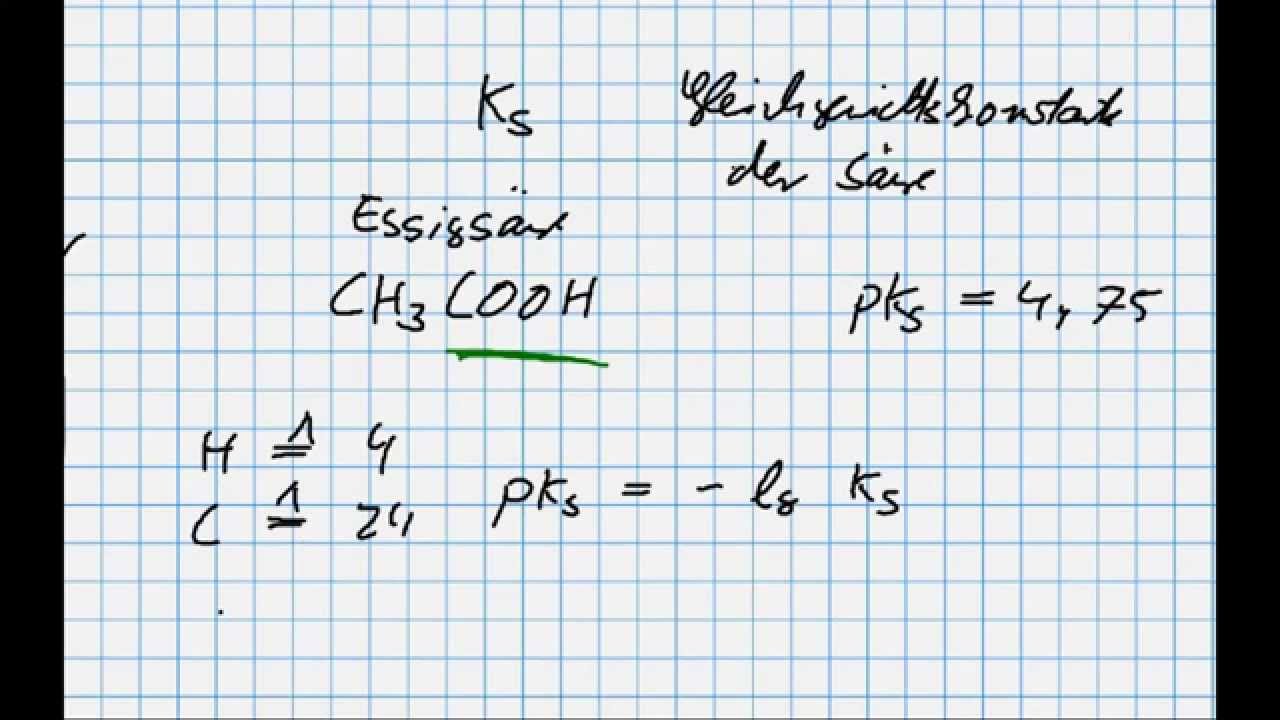 Ks Gleichgewichtskonstante
der Säure
Essigsäure
CH3COOH pKs = 4,75
H ≙ 4
C ≙ 24 pKs = - lg Ks